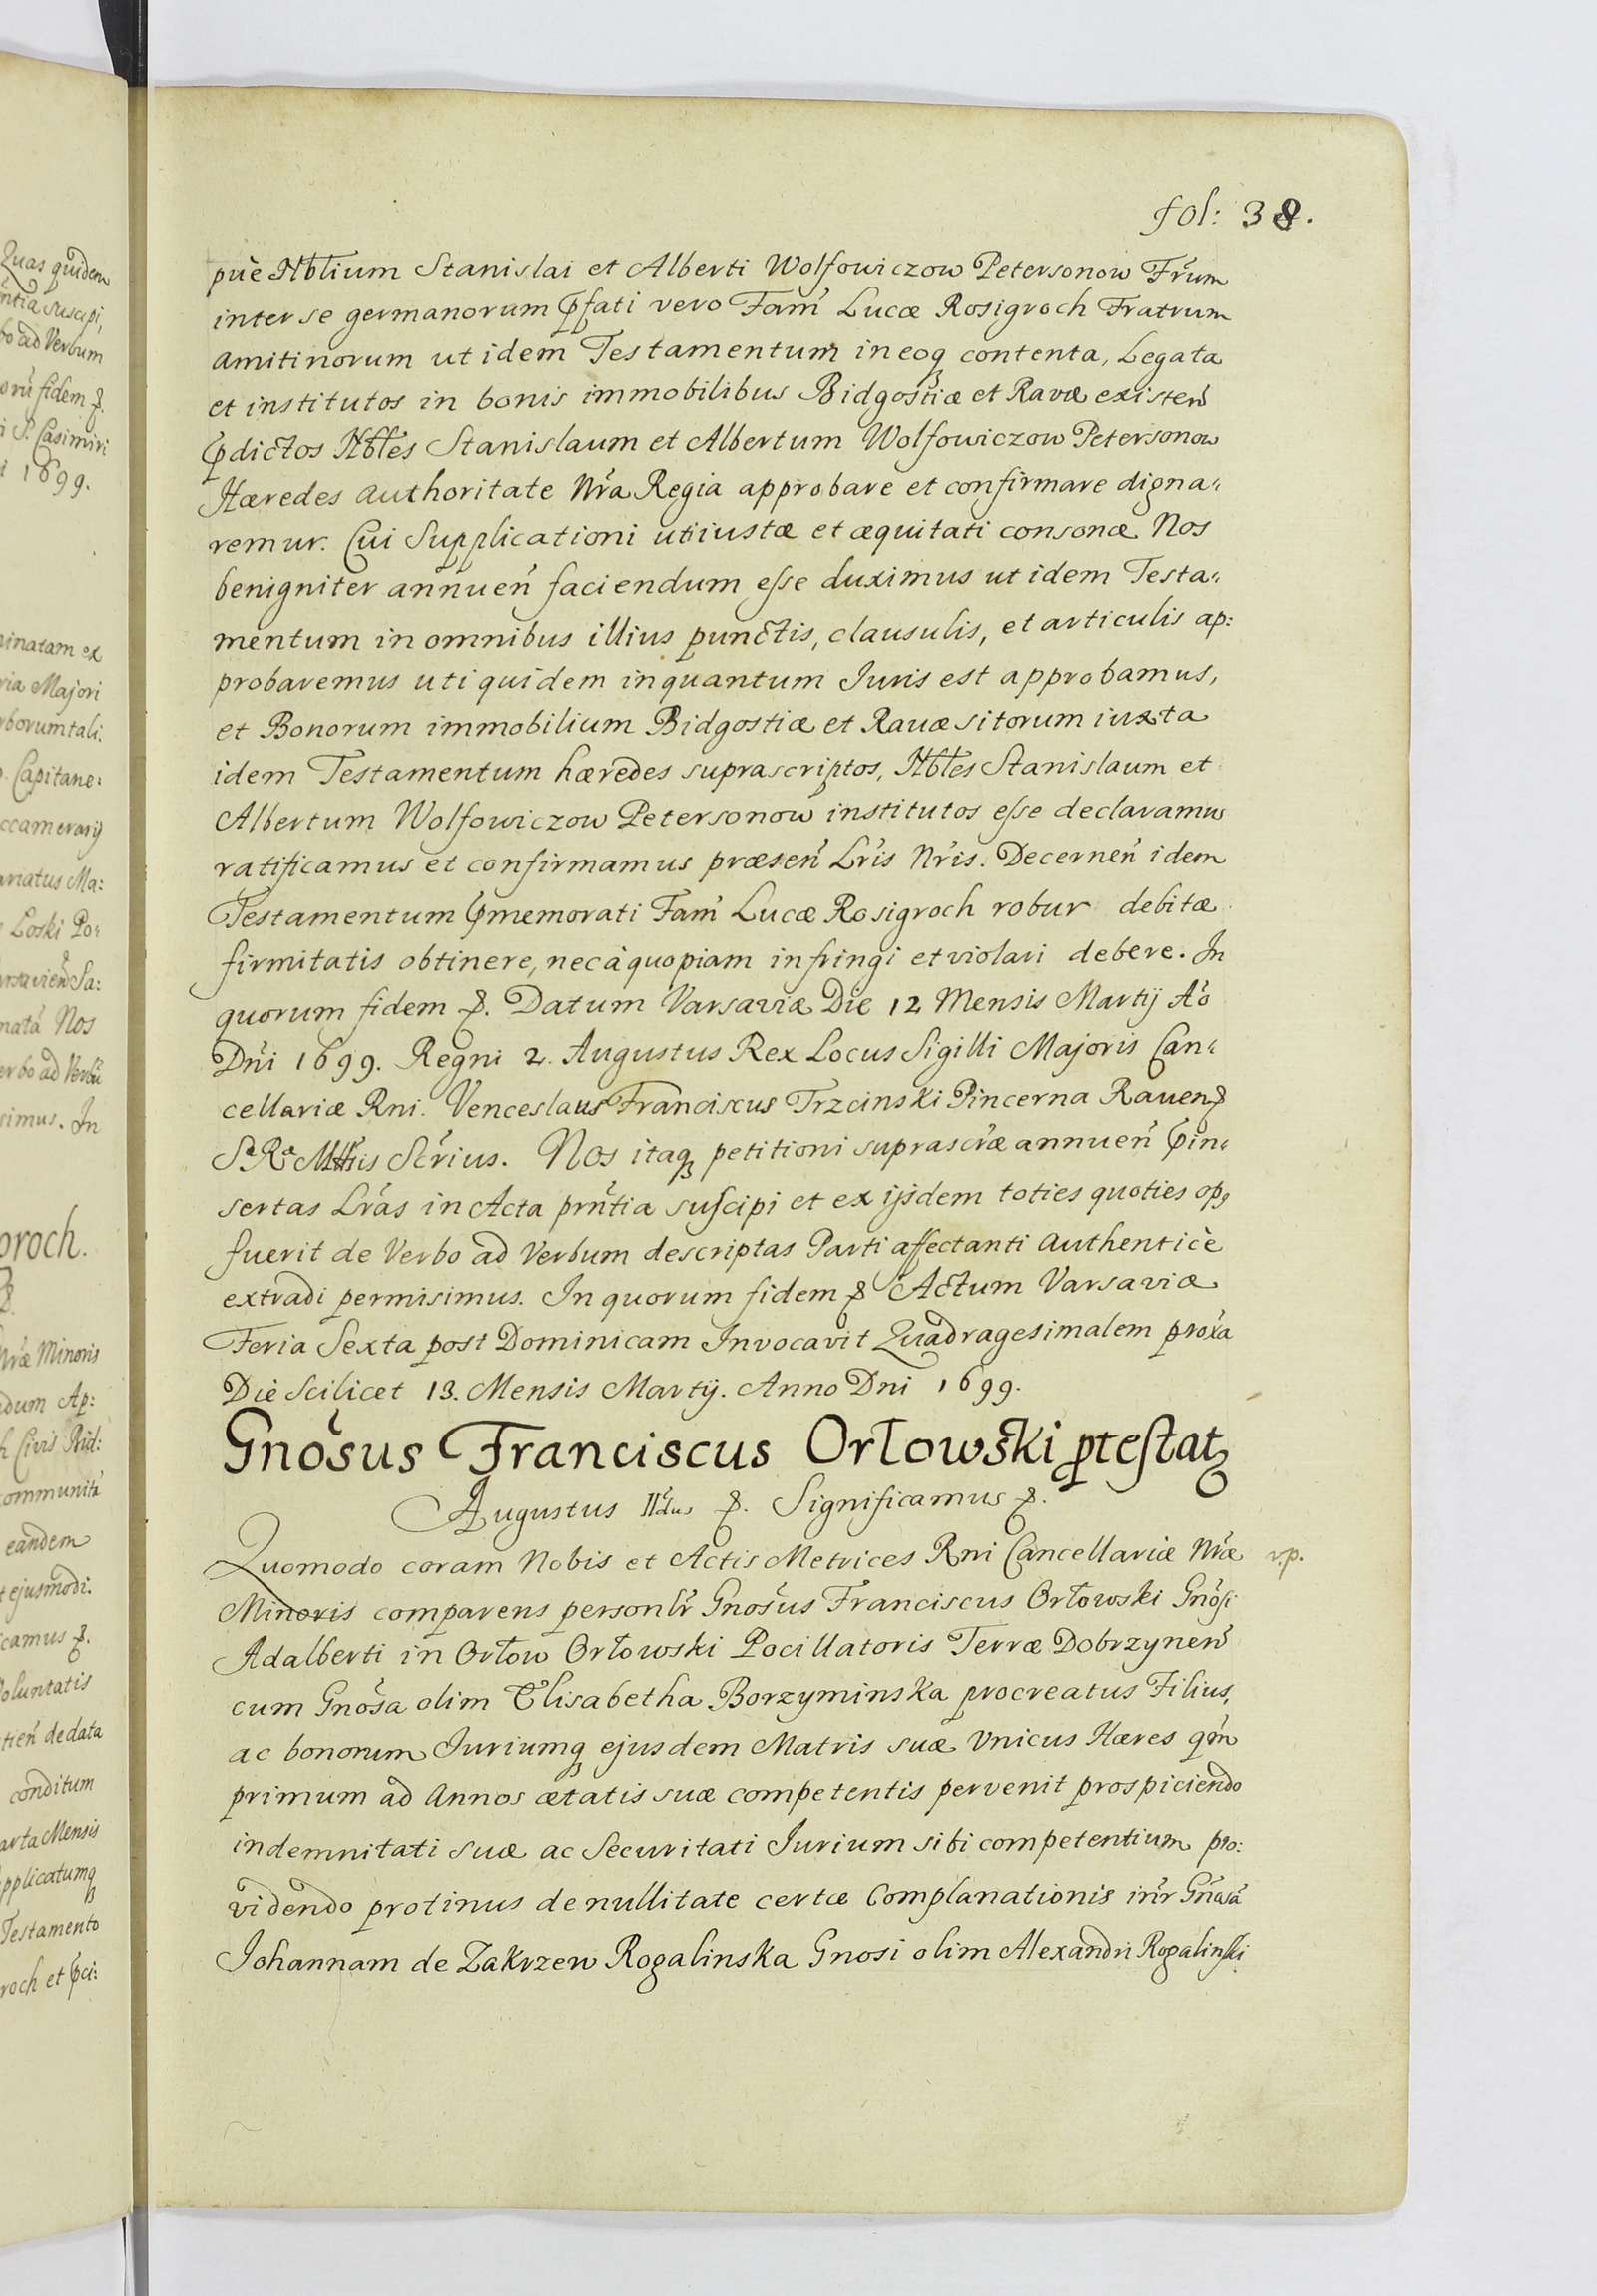 fol: 38.
puè Nblium Stanislai et Alberti Wolfowiczow Petersonow Frum
inter se germanorum pfati vero Fam Lucæ Rosigroch Fratrum
amitinorum ut idem Testamentum in eoq contenta, Legata
et institutos in bonis immobilibus Bidgostiæ et Ravæ existen
pdictos Nbles Stanislaum et Albertum Wolfowiczow Petersonow
Hæredes authoritate Nra Regia approbare et confirmare digna„
remur. Cui Supplicationi uti iustæ et æquitati consonæ Nos
benigniter annuen faciendum esse duximus ut idem Testa„
mentum in omnibus illius punctis, clausulis, et articulis ap:
probaremus uti quidem inquantum Juris est approbamus,
et Bonorum immobilium Bidgostiæ et Rauæ sitorum iuxta
idem Testamentum hæredes suprascriptos, Nbles Stanislaum et
Albertum Wolfowiczow Petersonow institutos esse declaramus
ratificamus et confirmamus præsen Lris Nris. Decernen idem
Testamentum pmemorati Fam Lucæ Rosigroch robur debitæ
firmitatis obtinere, nec à quopiam infringi et violari debere. In
quorum fidem &. Datum Varsaviæ Die 12 Mensis Martij Ao
Dni 1699. Regni 2. Augustus Rex Locus Sigilli Majoris Can„
cellariæ Rni. Venceslaus Franciscus Trzcinski Pincerna Rauen &
Sa Ra Mttis Scrius. Nos itaq petitioni suprascræ annuen pin„
sertas Lras in Acta prntia suscipi et ex ijsdem toties quoties op9
fuerit de Verbo ad Verbum descriptas Parti affectanti authenticè
extradi permisimus. In quorum fidem & Actum Varsaviæ
Feria Sexta post Dominicam Invocavit Quadragesimalem proxa
Die Scilicet 13. Mensis Martij. Anno Dni 1699.
Gnosus Franciscus Orłowski ptestat
Augustus IIdus &. Significamus &.
Quomodo coram Nobis et Actis Metrices Rni Cancellariæ Nræ v.p.
Minoris comparens personlr Gnosus Franciscus Orłowski Gnosi
Adalberti in Orłow Orłowski Pocillatoris Terræ Dobrzynen
cum Gnosa olim Elisabetha Borzyminska procreatus Filius,
ac bonorum Juriumq ejusdem Matris suæ Unicus Hæres qm
primum ad Annos ætatis suæ competentis pervenit prospiciendo
indemnitati suæ ac Securitati Jurium sibi competentium pro:
videndo protinus de nullitate certæ Complanationis intr Gnosa
Johannam de Zakrzew Rogalinska Gnosi olim Alexandri Rogalinski
Quas quidem
ntia suscipi,
bo ad Verbum
fidem &.
S. Casimiri
1699.
ninatam ex
ria Majori
rborum tali.
Capitane:
ccamerarij
Ma:
Loski Po„
Sa:
Nos
erbo ad Verbu
simus. In
oroch.
&.
Nræ Minoris
dum Ap:
Civis Bid:
communita
eandem
ejusmodi.
camus &.
Voluntatis
tien de data
conditum
arta Mensis
pplicatumq
Testamento
roch et pci: